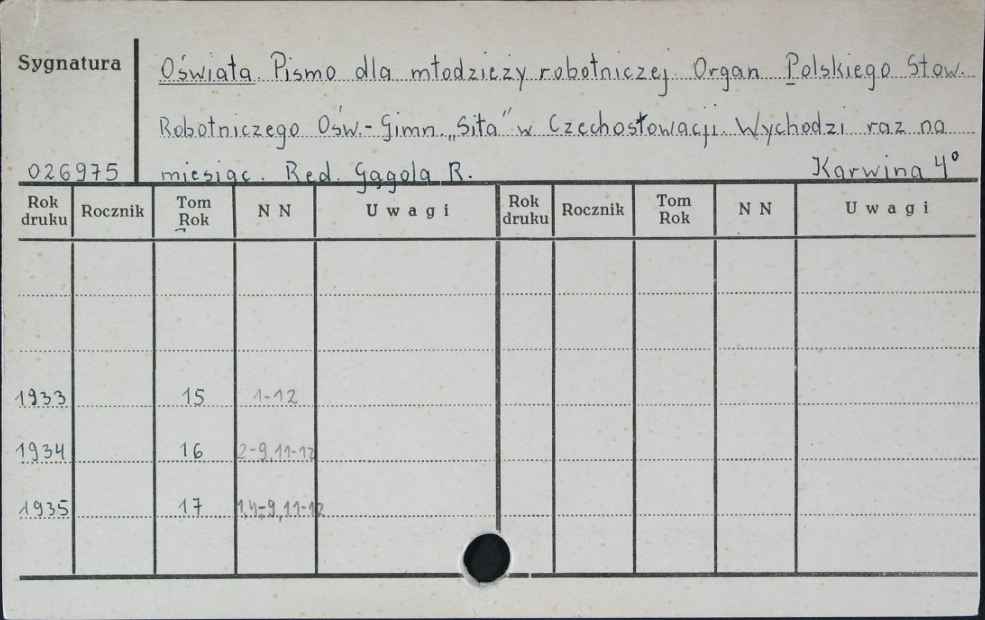 Sygnatura
Oświata. Pismo dla młodzieży robotniczej. Organ Polskiego Stow.
Robotniczego Ośw.-Gimn. „Siła" w Czechosłowacji. Wychodzi raz na
026975 miesiąc. Red. Gągola R. Karwina 4°
Rok druku Rocznik Tom Rok N N Uwagi Rok druku Rocznik Tom Rok N N Uwagi
1933 15 1-12
1934 16 2-9,11-12
1935 17 1,4-9,11-12